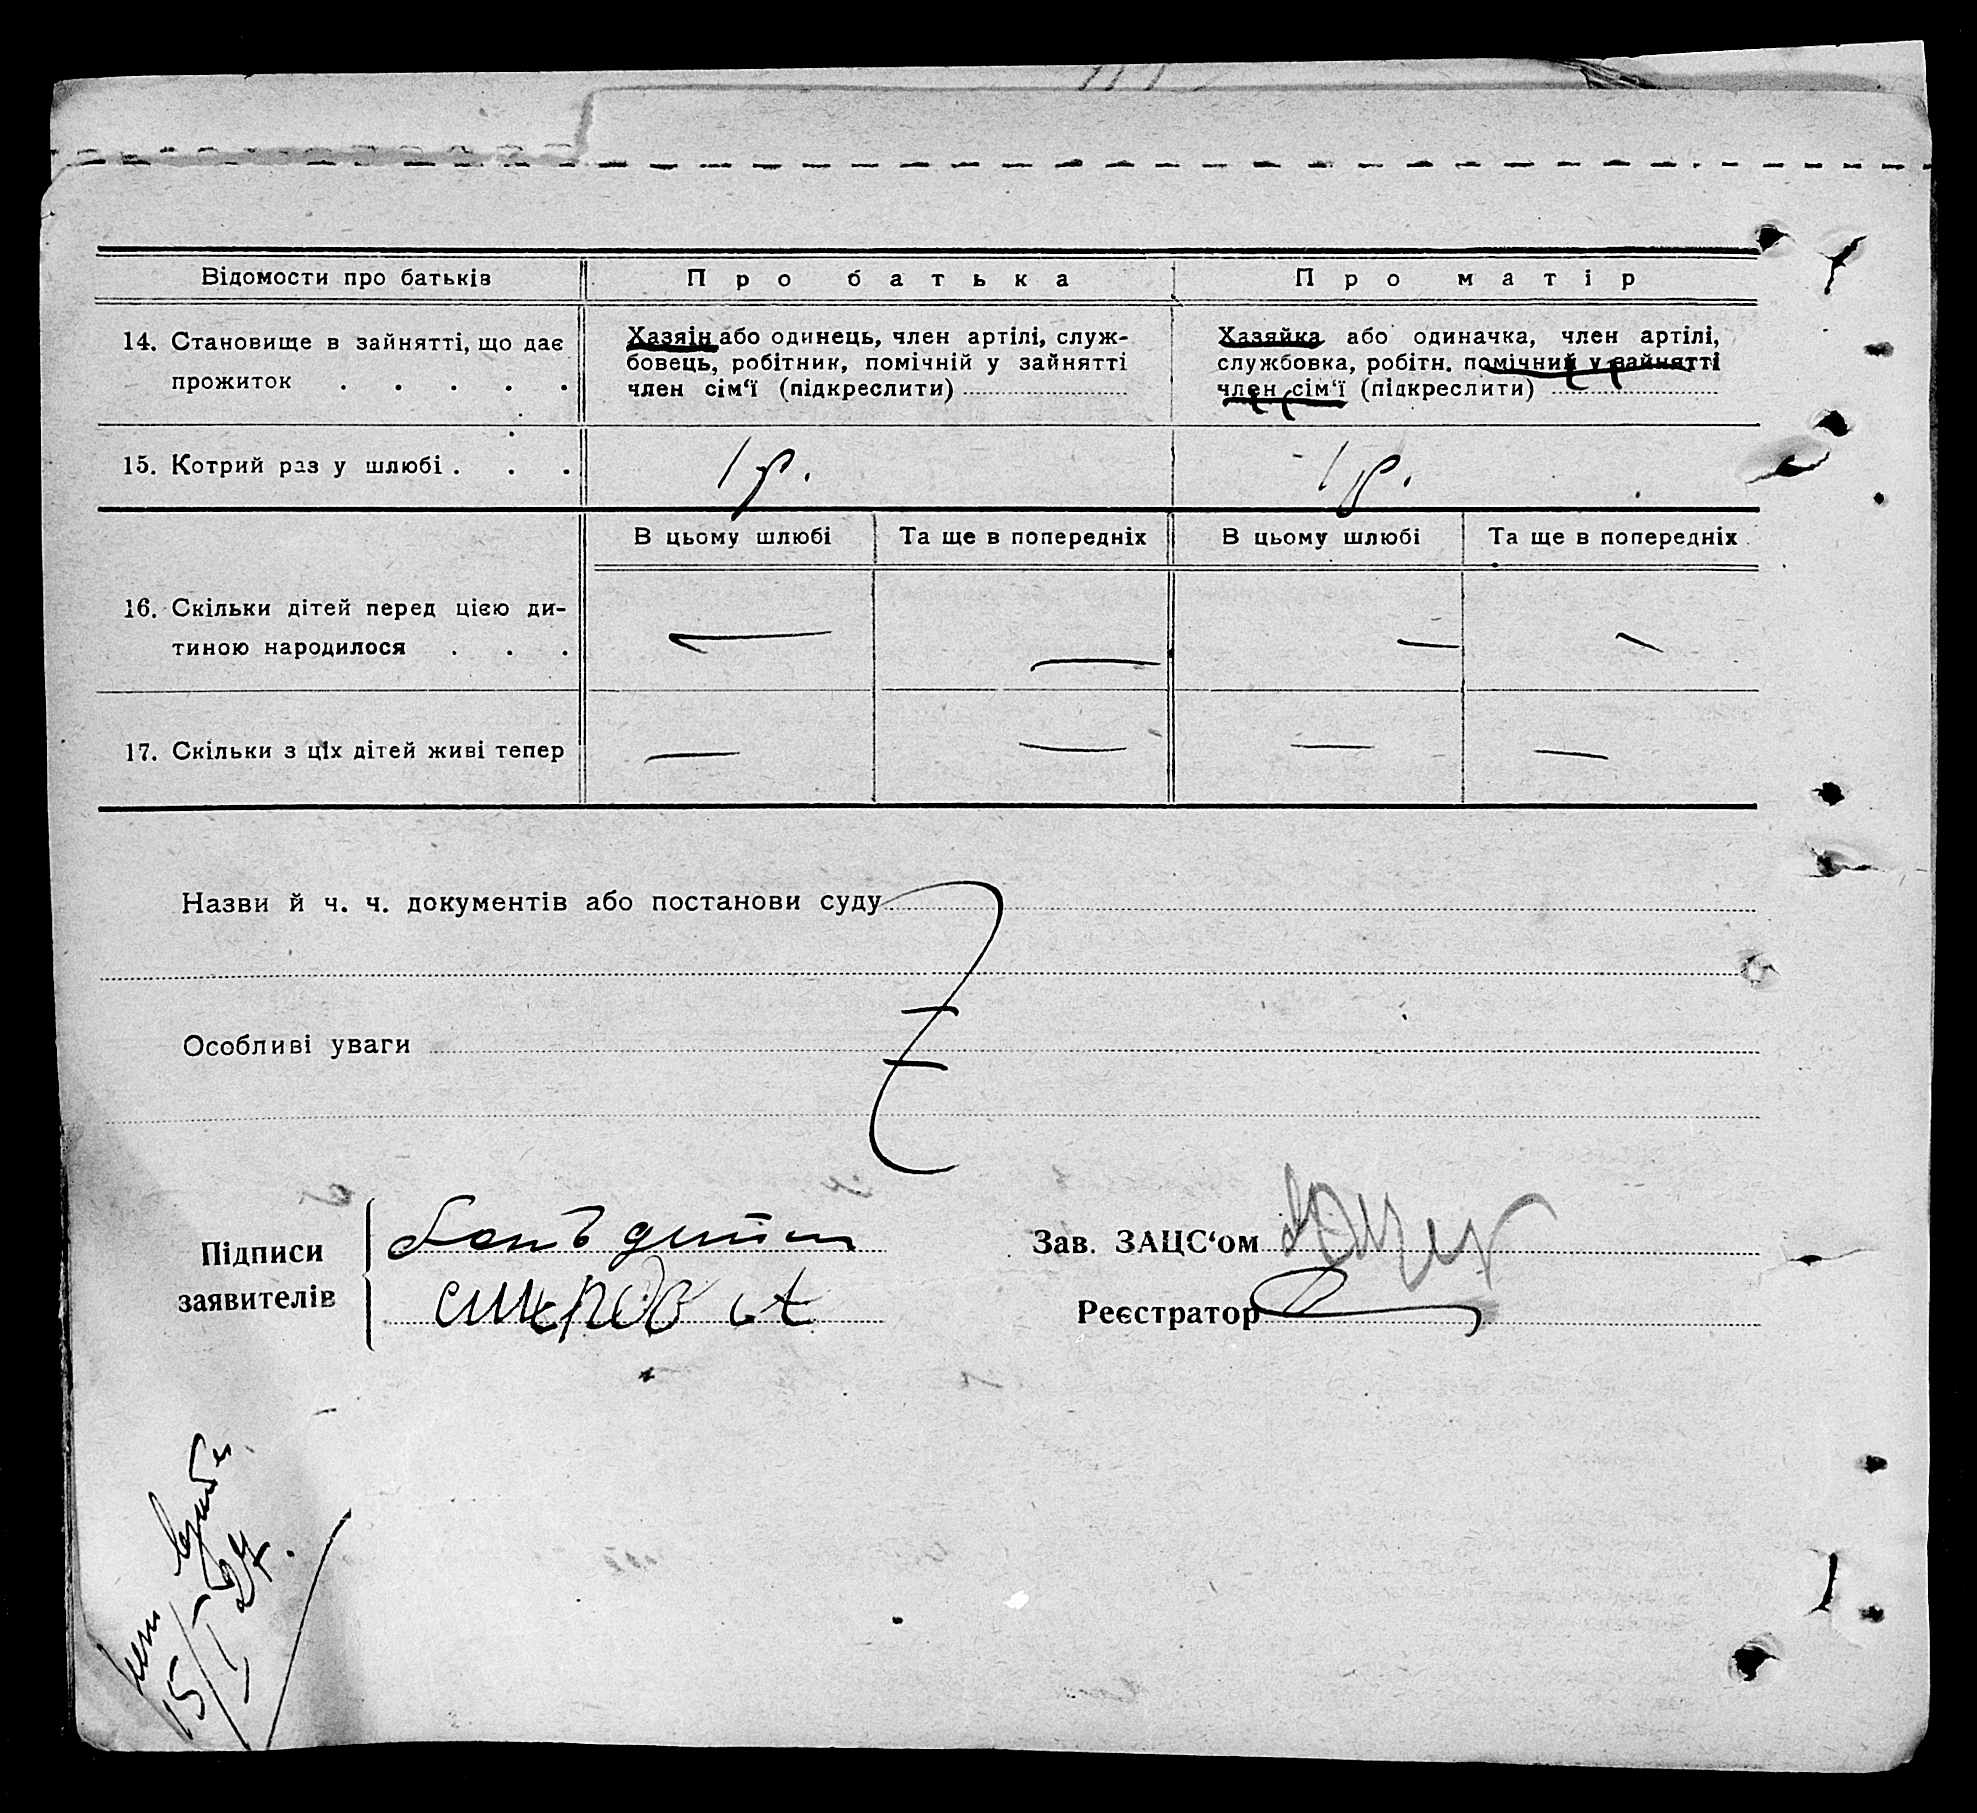 Відомости про батьків
Про батька
Про матір
14. Становище в зайнятті, що дає
прожиток . . . . .
Хазяін або одинець, член артілі, служ-
бовець, робітник, помічній у зайнятті
член сім‘ї (підкреслити)
Хазяйка або одиначка, член артілі,
службовка, робітн. помічний у зайнятті
член сім‘ї (підкреслити)
15. Котрий раз у шлюбі . . .
1 р.
1 р.
В цьому шлюбі
Та ще в попередніх
В цьому шлюбі
Та ще в попередніх
16. Скільки дітей перед цією ди-
тиною народилося . . .
— — — —
17. Скільки з ціх дітей живі тепер
— — — —
Назви й ч. ч. документів або постанови суду
Особливі уваги
Підписи
заявителів
Зав. ЗАЦС‘ом
Реєстратор
15/I 27.